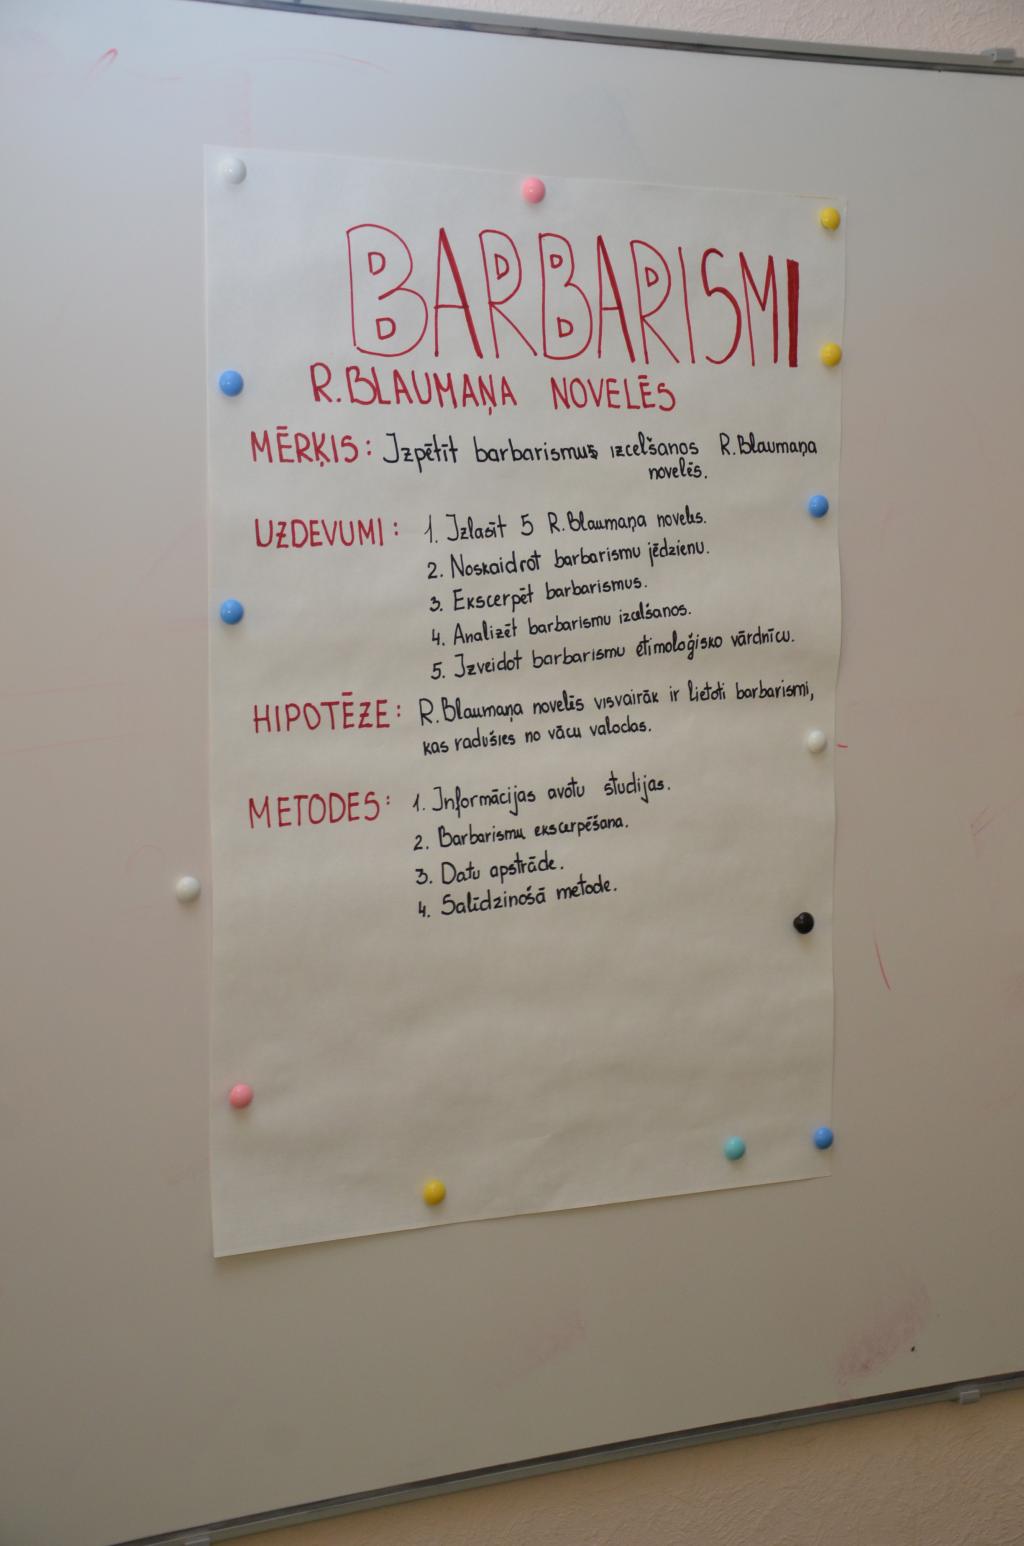 BARBARISMI
R.BLAUMAŅA NOVELĒS
MĒRĶIS: Izpētīt barbarismus izcelšanos R.Blaumaņa
novelēs.
UZDEVUMI: 1. Izlasīt 5 R.Blaumaņa noveles.
2. Noskaidrot barbarismu jēdzienu.
3. Ekscerpēt barbarismus.
4. Analizēt barbarismu izcelšanos.
5. Izveidot barbarismu etimoloģisko vārdnīcu.
HIPOTĒZE: R.Blaumaņa novelēs visvairāk ir lietoti barbarismi,
kas radušies no vācu valodas.
METODES: 1. Informācijas avotu studijas.
2. Barbarismu ekscerpēšana.
3. Datu apstrāde.
4. Salīdzinošā metode.